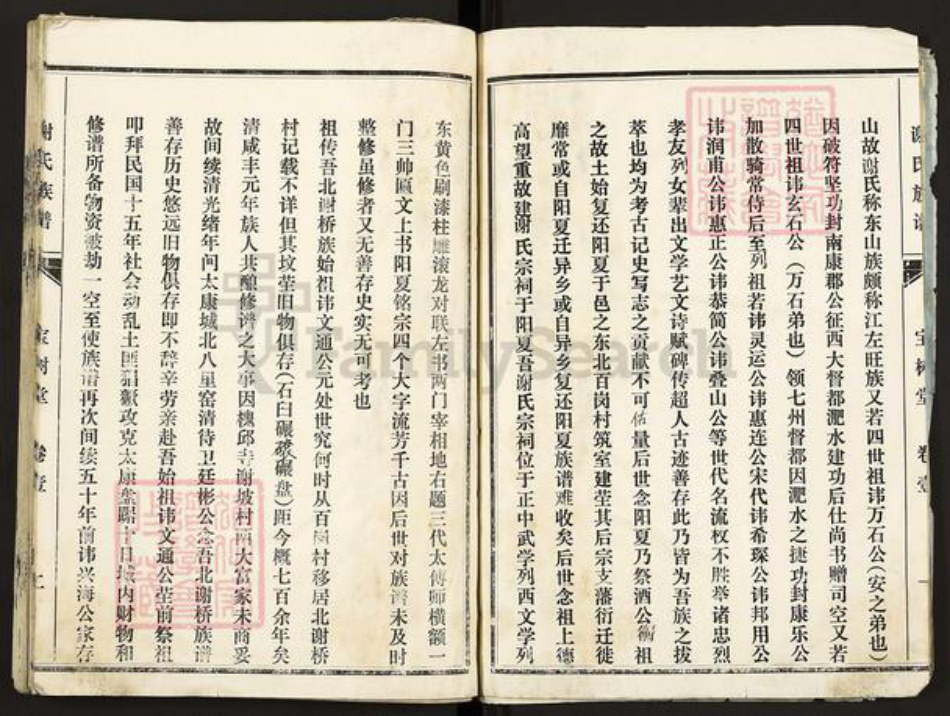 谢氏族谱
宝树堂
卷壹
一
山故谢氏称东山族颇称江左旺族又若四世祖讳万石公(安之弟也)
因破符坚功封南康郡公征西大督都淝水建功后仕尚书赠司空又若
四世祖讳玄石公(万石弟也)领七州督都因淝水之捷功封康乐公
加散骑常侍后至列祖若讳灵运公讳惠连公宋代讳希琛公讳邦用公
讳润甫公讳惠正公讳恭简公讳叠山公等世代名流权不胜举诸忠烈
孝友列女辈出文学艺文诗赋碑传超人古迹善存此乃皆为吾族之拔
萃也均为考古记史写志之贡献不可估量后世念阳夏乃祭酒公衡祖
之故土始复还阳夏于邑之东北百岗村筑室建茔其后宗支藩衍迁徙
靡常或自阳夏迁异乡或自异乡复还阳夏族谱难收矣后世念祖上德
高望重故建谢氏宗祠于阳夏吾谢氏宗祠位于正中武学列西文学列
东黄色刷漆柱雕滚龙对联左书两门宰相地右题三代太傅师横额一
门三帅匾文上书阳夏铭宗四个大字流芳千古因后世对族谱未及时
整修虽修者又无善存史实无可考也
祖传吾北谢桥族始祖讳文通公元处世究何时从百岗村移居北谢桥
村记载不详但其坟茔旧物俱存(石臼碾磙碾盘)距今概七百余年矣
清咸丰元年族人共酿修谱之大事因槐邱寺谢坡村两大富家未商妥
故间续清光绪年间太康城北八里窑清待卫廷彬公念吾北谢桥族谱
善存历史悠远旧物俱存即不辞辛劳亲赴吾始祖讳文通公茔前祭祖
叩拜民国十五年社会动乱土匪猖獗攻克太康盘踞十日城内财物和
修谱所备物资被劫一空至使族谱再次间续五十年前讳兴海公家存
谢氏族谱
宝树堂
卷壹